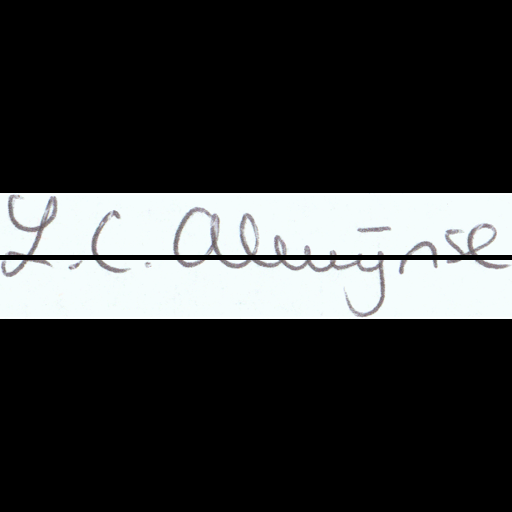 L.C. Alewijnse